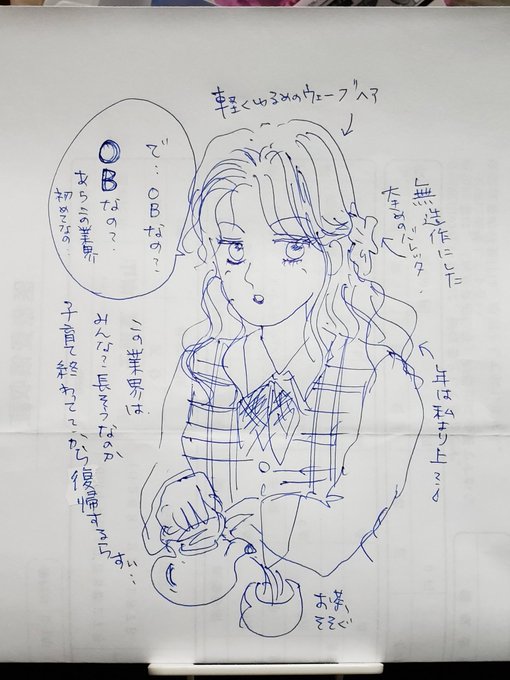 軽くゆるめのウェーブヘア
無造作にした
大きめのバレッタ
で…OBなの?
OBなの?
あらこの業界
初めてなの…
年は私より上?
この業界は
みんな?長そうなのか
子育て終わってて、から復帰するらすい…
お茶、
そそぐ